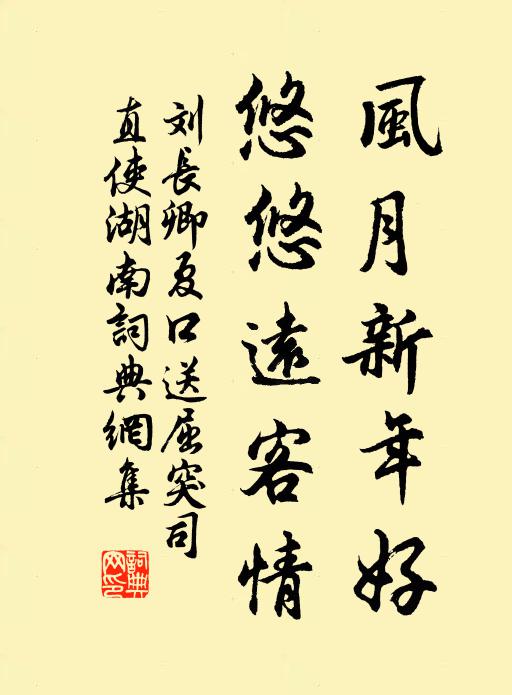 風月新年好
悠悠遠客情
刘長卿夏口送屈突司
直使湖南詞典網集
詞典
网印